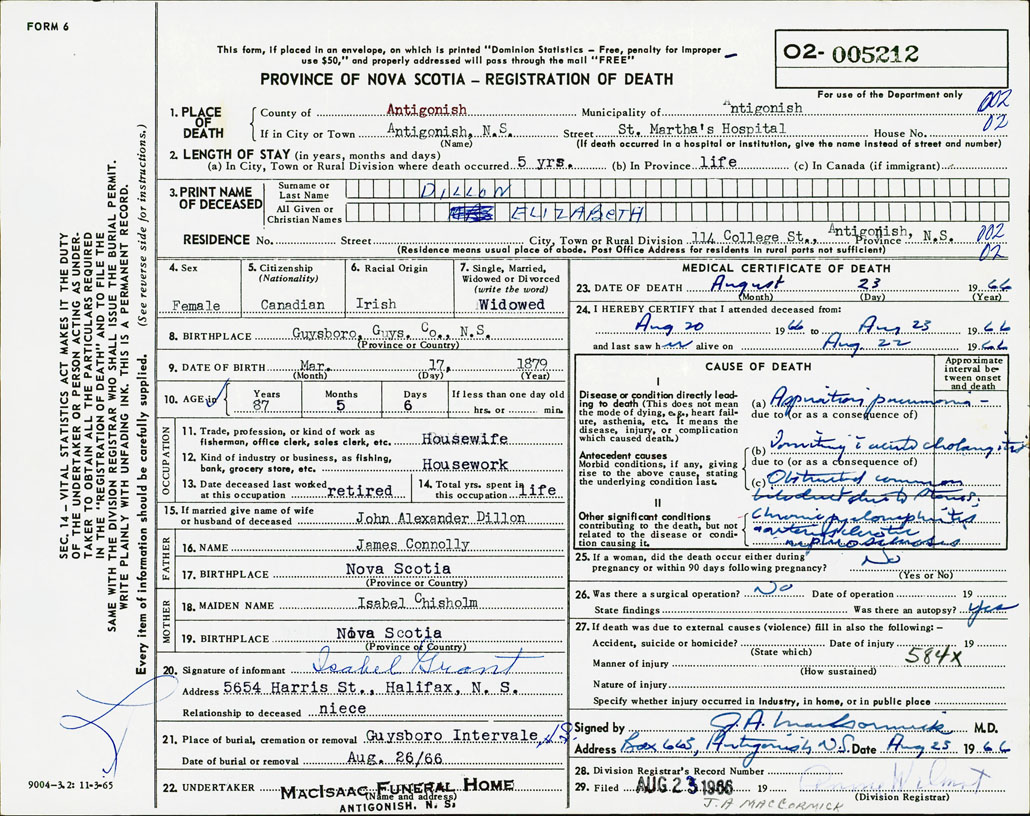 FORM 6
This form, if placed in an envelope, on which is printed "Dominion Statistics – Free, penalty for improper
use $50," and properly addressed will pass through the mail "FREE"
O2- 005212
PROVINCE OF NOVA SCOTIA – REGISTRATION OF DEATH
For use of the Department only
1. PLACE OF DEATH County of Antigonish Municipality of Antigonish 002
If in City or Town Antigonish, N.S. Street St. Martha's Hospital House No. 02
(Name) (If death occurred in a hospital or institution, give the name instead of street and number)
2. LENGTH OF STAY (in years, months and days)
(a) In City, Town or Rural Division where death occurred 5 yrs. (b) In Province life (c) In Canada (if immigrant)
3. PRINT NAME OF DECEASED Surname or Last Name DILLON
All Given or Christian Names ELIZABETH
RESIDENCE No. Street City, Town or Rural Division 114 College St., Antigonish, N.S. Province 002
(Residence means usual place of abode. Post Office Address for residents in rural parts not sufficient) 02
4. Sex Female
5. Citizenship (Nationality) Canadian
6. Racial Origin Irish
7. Single, Married, Widowed or Divorced (write the word) Widowed
8. BIRTHPLACE Guysboro, Guys. Co., N.S.
(Province or Country)
9. DATE OF BIRTH Mar. 17, 1879
(Month) (Day) (Year)
10. AGE in Years 87 Months 5 Days 6 If less than one day old hrs. or min.
OCCUPATION
11. Trade, profession, or kind of work as fisherman, office clerk, sales clerk, etc. Housewife
12. Kind of industry or business, as fishing, bank, grocery store, etc. Housework
13. Date deceased last worked at this occupation retired
14. Total yrs. spent in this occupation life
15. If married give name of wife or husband of deceased John Alexander Dillon
FATHER
16. NAME James Connolly
17. BIRTHPLACE Nova Scotia
(Province or Country)
MOTHER
18. MAIDEN NAME Isabel Chisholm
19. BIRTHPLACE Nova Scotia
(Province or Country)
20. Signature of informant Isabel Grant
Address 5654 Harris St., Halifax, N. S.
Relationship to deceased niece
21. Place of burial, cremation or removal Guysboro Intervale, N.S.
Date of burial or removal Aug. 26/66
22. UNDERTAKER MacIsaac Funeral Home
(Name and address)
ANTIGONISH, N. S.
MEDICAL CERTIFICATE OF DEATH
23. DATE OF DEATH August 23 1966
(Month) (Day) (Year)
24. I HEREBY CERTIFY that I attended deceased from:
Aug 20 1966 to Aug 23 1966
and last saw her alive on Aug 22 1966
CAUSE OF DEATH
Approximate interval between onset and death
I
Disease or condition directly leading to death (This does not mean the mode of dying, e.g., heart failure, asthenia, etc. It means the disease, injury, or complication which caused death.)
(a) Aspiration pneumonia –
due to (or as a consequence of)
Antecedent causes
Morbid conditions, if any, giving rise to the above cause, stating the underlying condition last.
(b) Vomiting c̄ acute cholangitis
due to (or as a consequence of)
(c) Obstructed common bile duct due to stones.
II
Other significant conditions contributing to the death, but not related to the disease or condition causing it.
Chronic pyelonephritis
arteriosclerotic
nephrosclerosis
25. If a woman, did the death occur either during pregnancy or within 90 days following pregnancy? No
(Yes or No)
26. Was there a surgical operation? No Date of operation 19
State findings Was there an autopsy? Yes
27. If death was due to external causes (violence) fill in also the following: –
Accident, suicide or homicide? Date of injury 19
(State which) 584X
Manner of injury
(How sustained)
Nature of injury
Specify whether injury occurred in industry, in home, or in public place
Signed by J.A. MacCormick M.D.
Address Box 663, Antigonish, N.S. Date Aug 23 1966
28. Division Registrar's Record Number
29. Filed AUG 23 1966 19
(Division Registrar)
J.A MACCORMICK
SEC. 14 – VITAL STATISTICS ACT MAKES IT THE DUTY
OF THE UNDERTAKER OR PERSON ACTING AS UNDER-
TAKER TO OBTAIN ALL THE PARTICULARS REQUIRED
IN THE "REGISTRATION OF DEATH" AND TO FILE THE
SAME WITH THE DIVISION REGISTRAR WHO SHALL ISSUE THE BURIAL PERMIT.
WRITE PLAINLY WITH UNFADING INK. THIS IS A PERMANENT RECORD.
Every item of information should be carefully supplied. (See reverse side for instructions.)
9004-3.2: 11-3-65